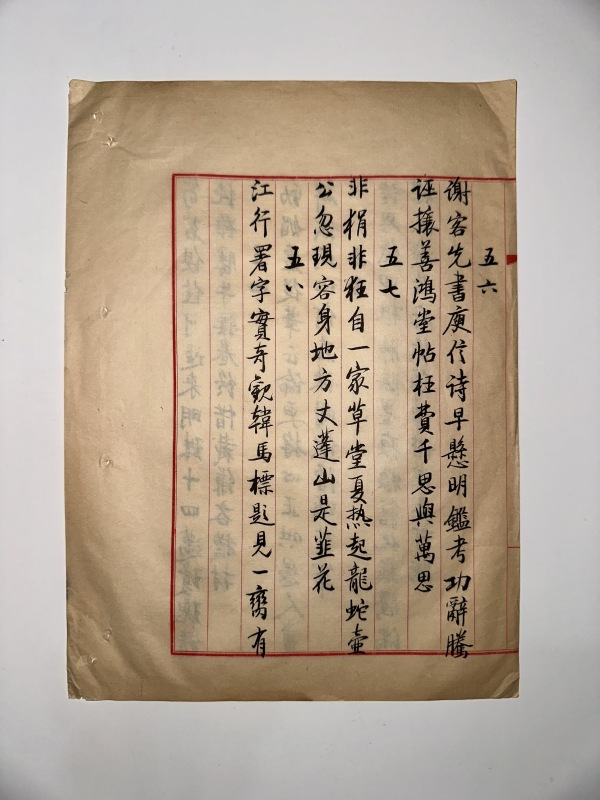 五六
谢客先書庾信诗早懸明鑑考功辭騰
誣攘善鴻堂帖枉費千思與萬思
五七
非狷非狂自一家草堂夏热起龍蛇壺
公忽現容身地方丈蓬山是韮花
五八
江行署字實奇觀韓馬標題見一臠有